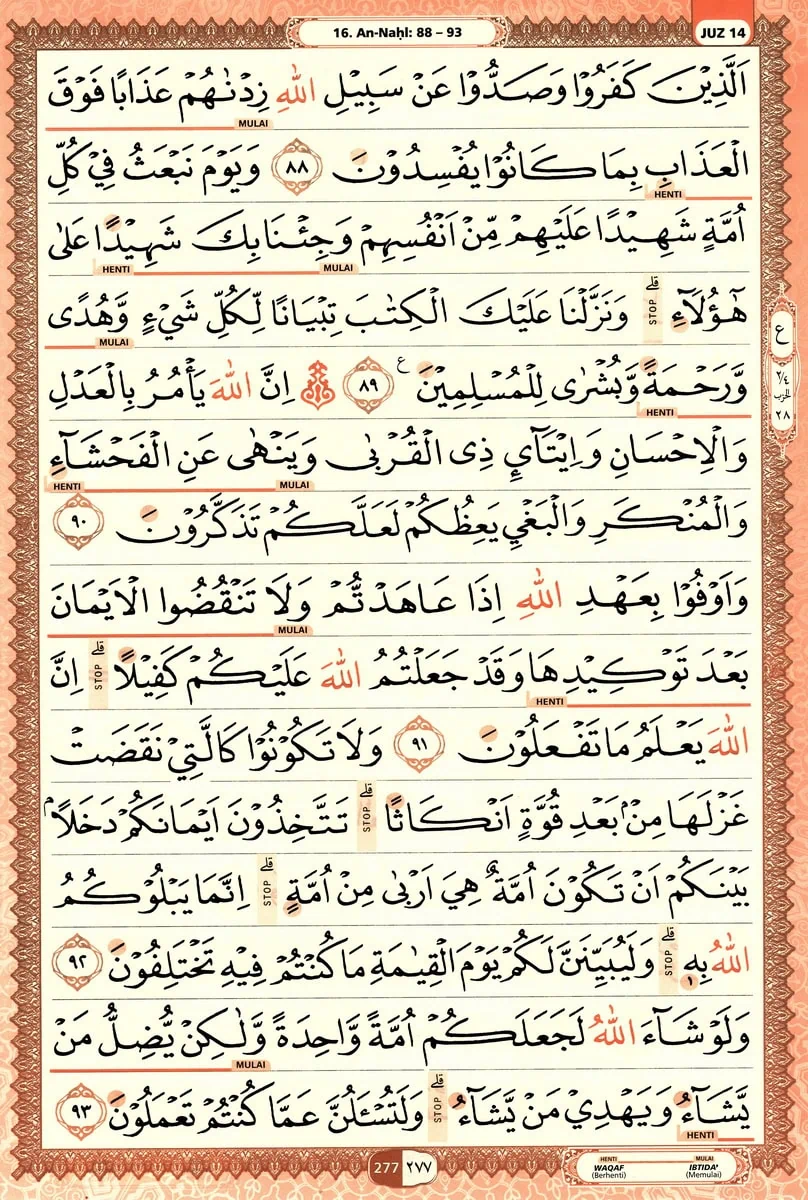 16. An-Naḥl: 88 – 93
JUZ 14
اَلَّذِيْنَ كَفَرُوْا وَصَدُّوْا عَنْ سَبِيْلِ اللّٰهِ زِدْنٰهُمْ عَذَابًا فَوْقَ
MULAI
الْعَذَابِ بِمَا كَانُوْا يُفْسِدُوْنَ ٨٨ وَيَوْمَ نَبْعَثُ فِيْ كُلِّ
HENTI
اُمَّةٍ شَهِيْدًا عَلَيْهِمْ مِّنْ اَنْفُسِهِمْ وَجِئْنَا بِكَ شَهِيْدًا عَلٰى
HENTI MULAI
هٰٓؤُلَاۤءِ ۗ STOP وَنَزَّلْنَا عَلَيْكَ الْكِتٰبَ تِبْيَانًا لِّكُلِّ شَيْءٍ وَّهُدًى
MULAI
ع
٢/٤
الحزب
٢٨
وَّرَحْمَةً وَّبُشْرٰى لِلْمُسْلِمِيْنَ ࣖ ٨٩ ۞ اِنَّ اللّٰهَ يَأْمُرُ بِالْعَدْلِ
HENTI
وَالْاِحْسَانِ وَاِيْتَاۤئِ ذِى الْقُرْبٰى وَيَنْهٰى عَنِ الْفَحْشَاۤءِ
HENTI MULAI
وَالْمُنْكَرِ وَالْبَغْيِ يَعِظُكُمْ لَعَلَّكُمْ تَذَكَّرُوْنَ ٩٠
وَاَوْفُوْا بِعَهْدِ اللّٰهِ اِذَا عَاهَدْتُّمْ وَلَا تَنْقُضُوا الْاَيْمَانَ
MULAI
بَعْدَ تَوْكِيْدِهَا وَقَدْ جَعَلْتُمُ اللّٰهَ عَلَيْكُمْ كَفِيْلًا ۗ STOP اِنَّ
HENTI
اللّٰهَ يَعْلَمُ مَا تَفْعَلُوْنَ ٩١ وَلَا تَكُوْنُوْا كَالَّتِيْ نَقَضَتْ
غَزْلَهَا مِنْۢ بَعْدِ قُوَّةٍ اَنْكَاثًا ۗ STOP تَتَّخِذُوْنَ اَيْمَانَكُمْ دَخَلًا ۢ
بَيْنَكُمْ اَنْ تَكُوْنَ اُمَّةٌ هِيَ اَرْبٰى مِنْ اُمَّةٍ ۗ STOP اِنَّمَا يَبْلُوْكُمُ
اللّٰهُ بِهٖ ۗ STOP وَلَيُبَيِّنَنَّ لَكُمْ يَوْمَ الْقِيٰمَةِ مَا كُنْتُمْ فِيْهِ تَخْتَلِفُوْنَ ٩٢
وَلَوْ شَاۤءَ اللّٰهُ لَجَعَلَكُمْ اُمَّةً وَّاحِدَةً وَّلٰكِنْ يُّضِلُّ مَنْ
MULAI
يَّشَاۤءُ وَيَهْدِيْ مَنْ يَّشَاۤءُ ۗ STOP وَلَتُسْـَٔلُنَّ عَمَّا كُنْتُمْ تَعْمَلُوْنَ ٩٣
HENTI
277 ٢٧٧
HENTI MULAI
WAQAF IBTIDA'
(Berhenti) (Memulai)